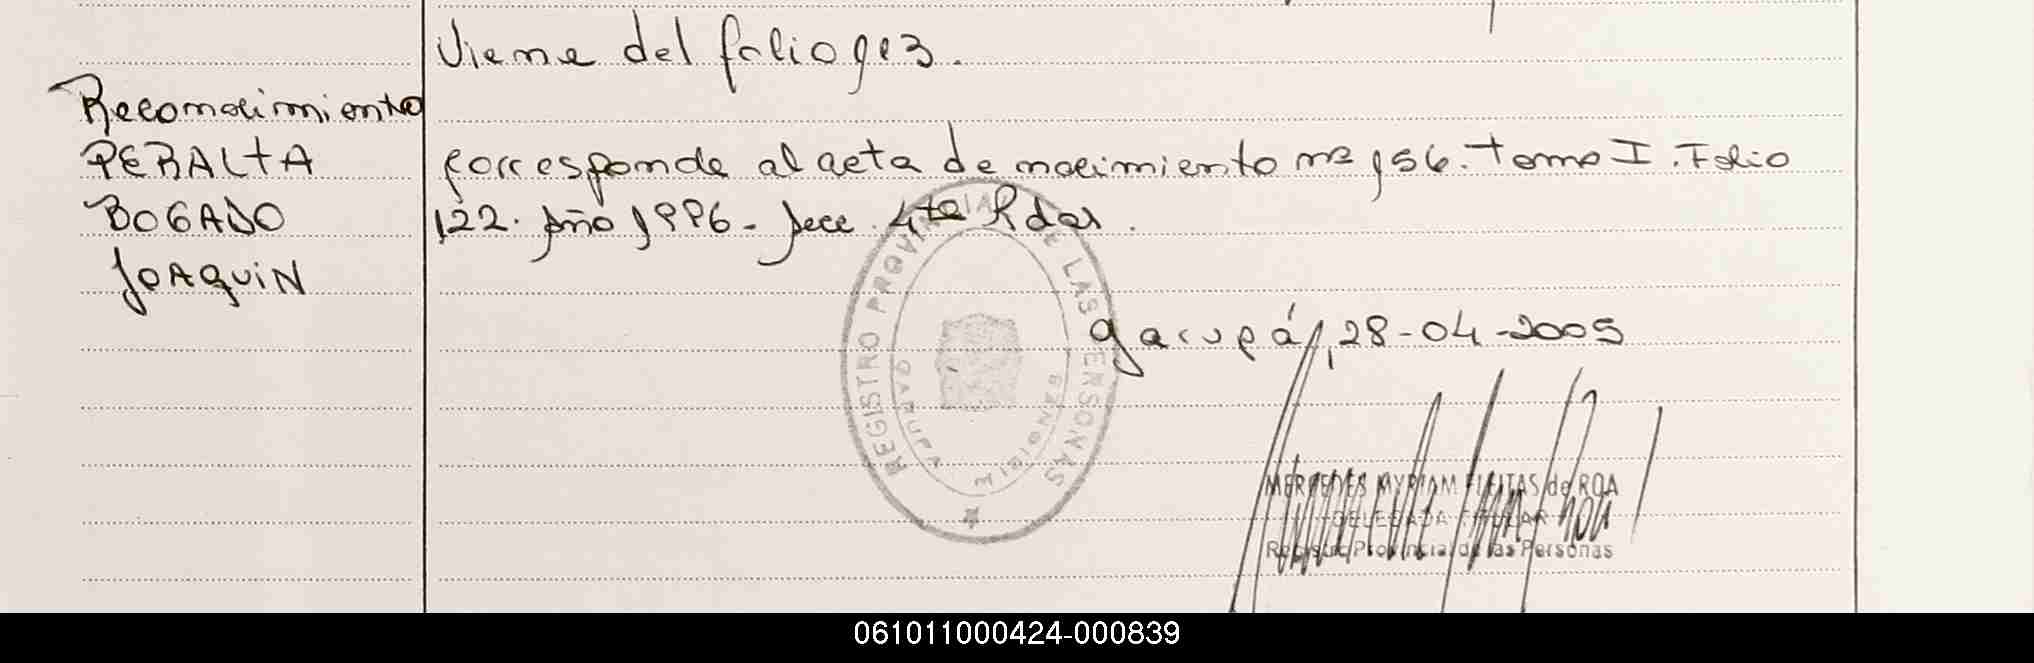 Viene del folio 913.
Reconocimiento
PERALTA
BOGADO
JOAQUIN
Corresponde al acta de nacimiento nº 156. Tomo I. Folio
122. Año 1996. Secc. 4ta Pdas.
REGISTRO PROVINCIAL DE LAS PERSONAS
GARUPA
MISIONES
Garupá, 28-04-2005
MERCEDES MYRIAM FLEITAS de ROA
DELEGADA TITULAR
Registro Provincial de las Personas
061011000424-000839